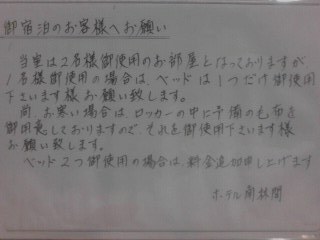 御宿泊のお客様へお願い
当室は2名様御使用のお部屋となっておりますが
1名様御使用の場合は、ベッドは1つだけ御使用
下さいます様お願い致します。
尚、お寒い場合は、ロッカーの中に予備の毛布を
御用意しておりますので、それを御使用下さいます様
お願い致します。
ベッド2つ御使用の場合は、料金追加申し上げます
ホテル南林間